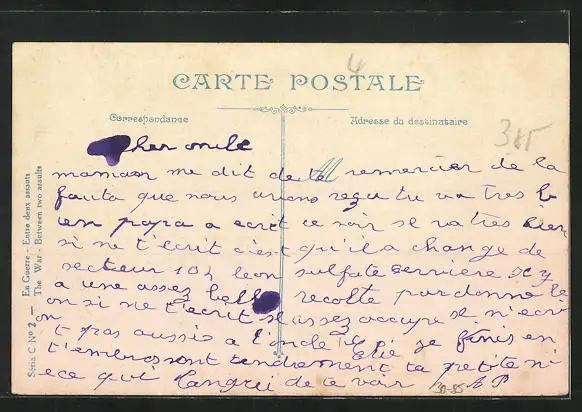 4
CARTE POSTALE
Correspondance
Adresse du destinataire
385
cher oncle
maman me dit de te remercier de la
fauto que nous avons reçu tu va tres b
ien papa a ecrit ce soir il va tres bien
si ne t'ecrit c'est qu'il a change de
secteur 104 leon sulfate derriere il y
a une assez belle recolte pardonne le
on si ne t'ecrit assez occupe si n'ecri
t pas aussi a l'oncle Elie je finis en
t'embrassant tendrement ta petite ni
ece qui langui de te voir AP
30-85
Série C Nº 2 — En Guerre - Entre deux assauts
The War - Between two assults